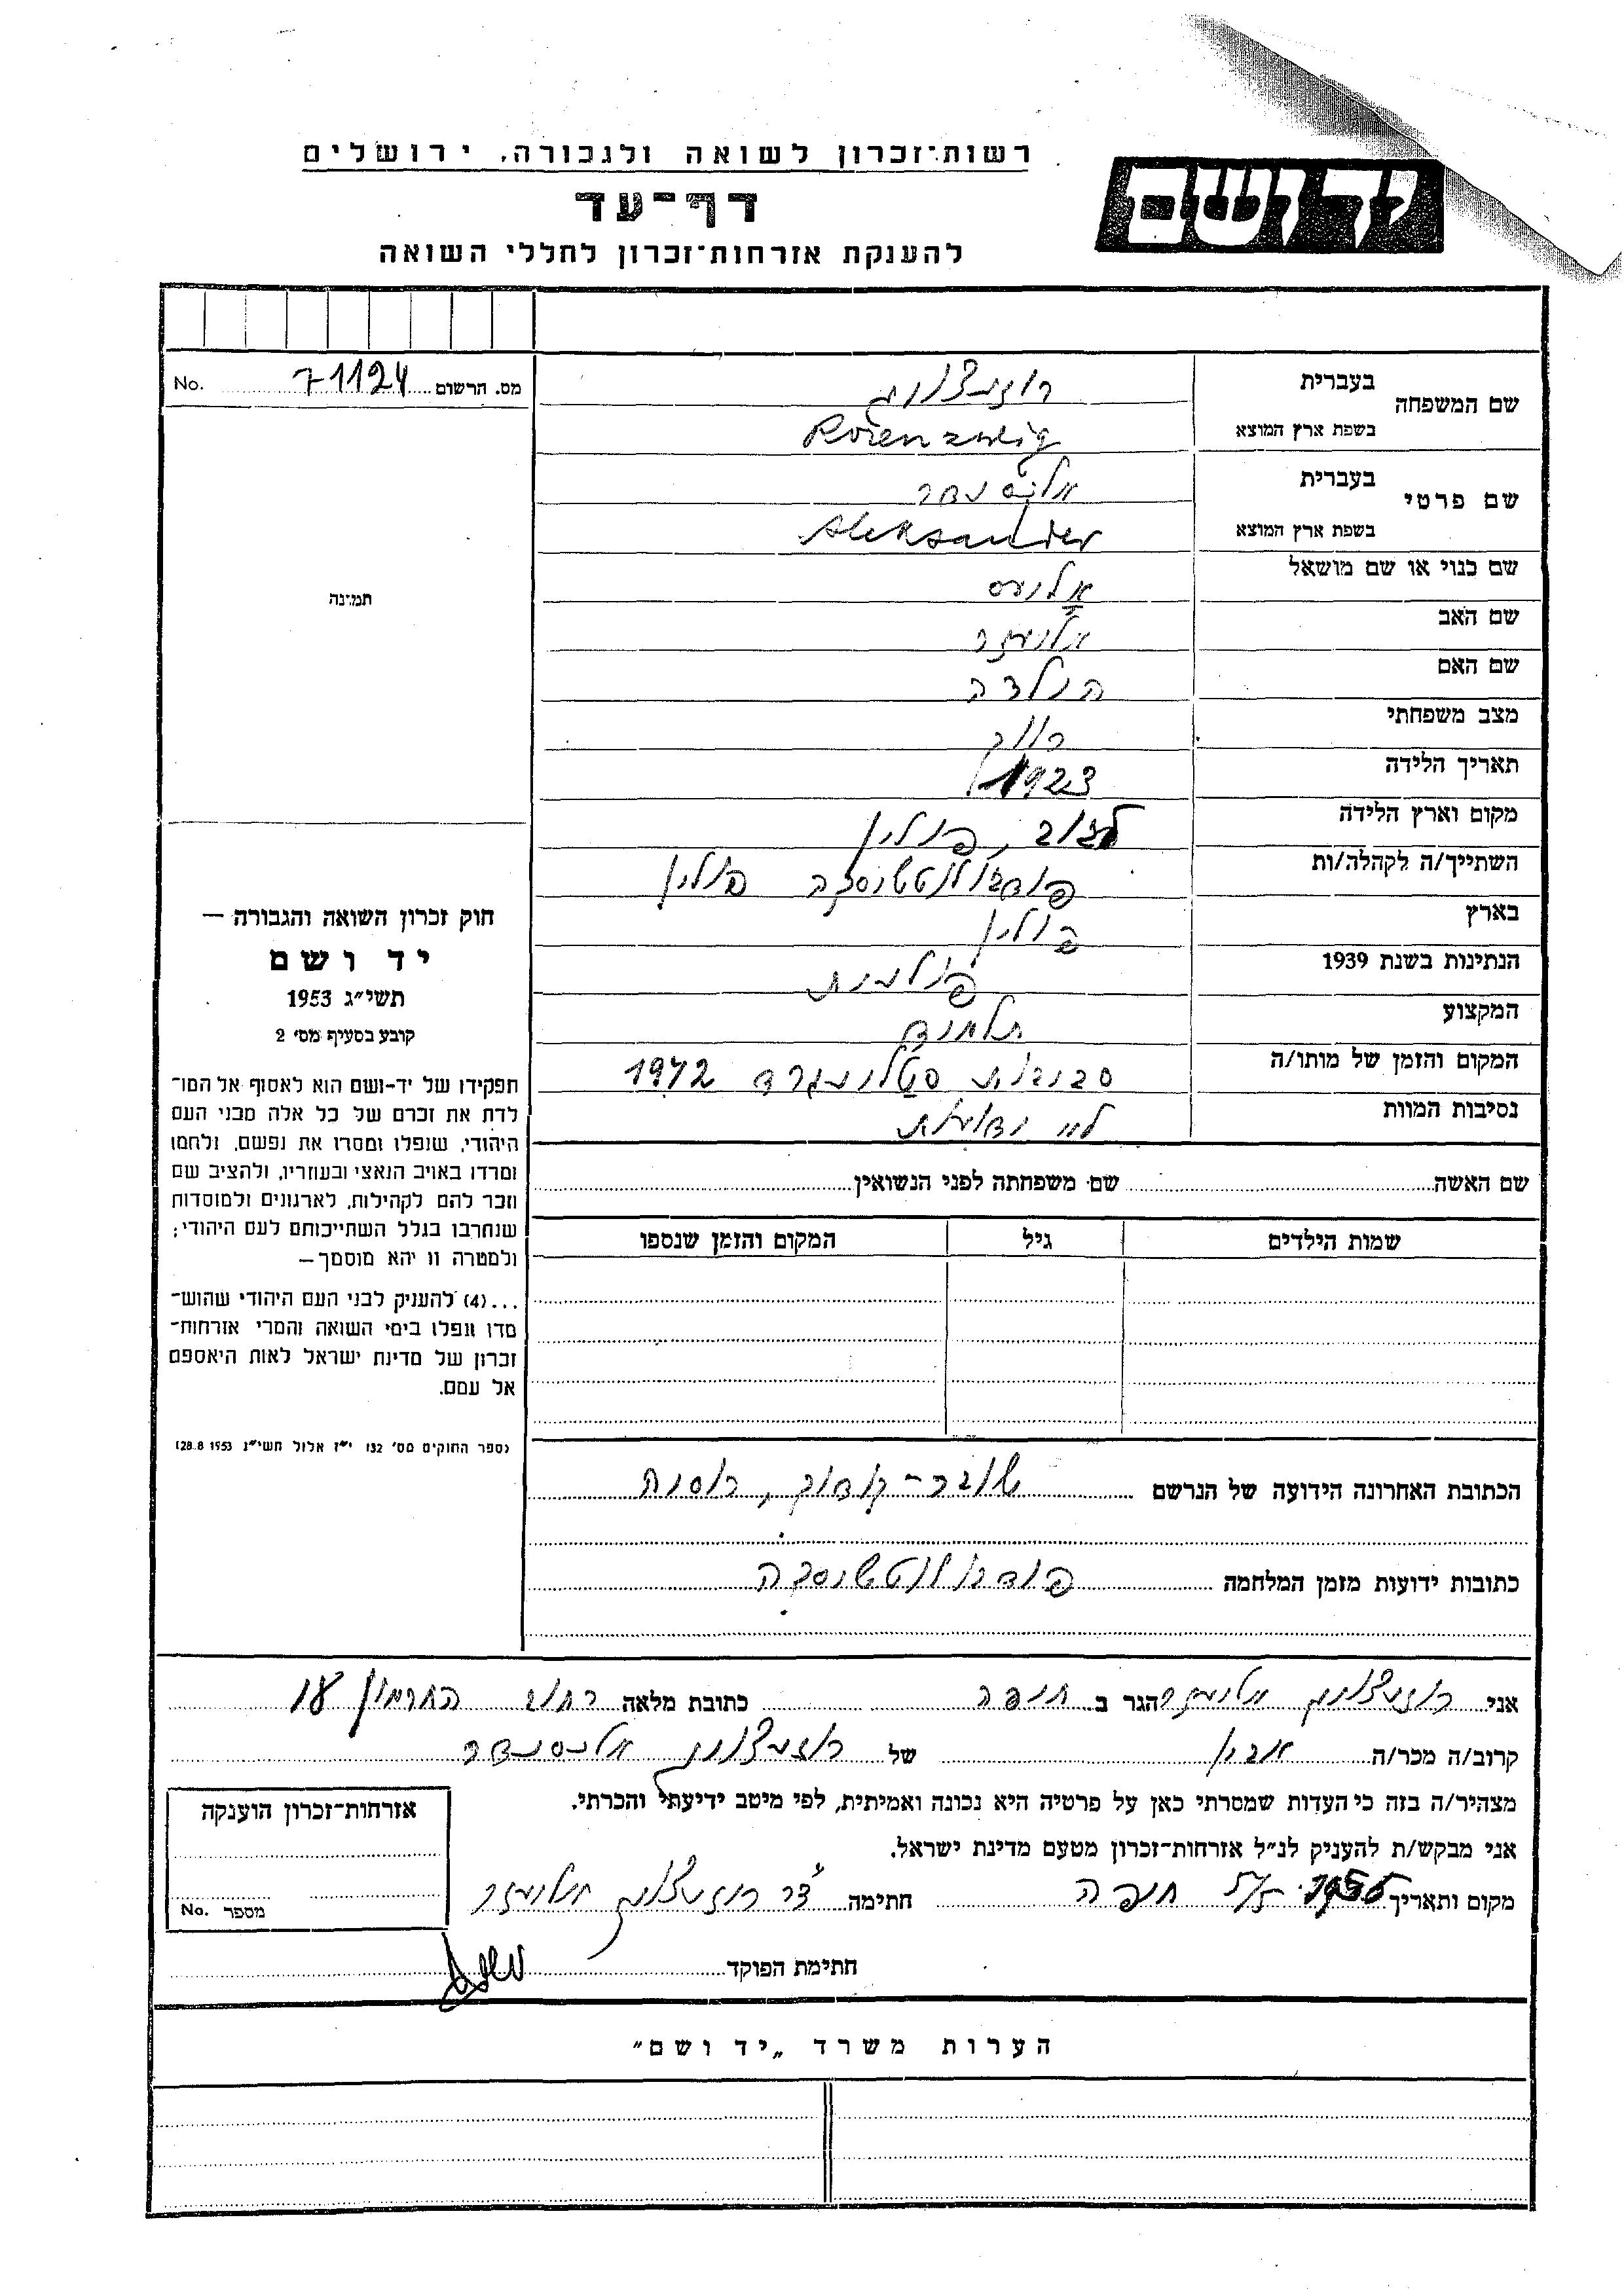 רשות־זכרון לשואה ולגבורה, ירושלים
יד ושם
דף־עד
להענקת אזרחות־זכרון לחללי השואה
מס. הרשום 71124 No.
שם המשפחה
בעברית רוזנצווג
בשפת ארץ המוצא Rozenzweig
שם פרטי
בעברית אלכסנדר
בשפת ארץ המוצא Aleksander
שם כנוי או שם מושאל
שם האב אליעזר
שם האם הילדה
מצב משפחתי רווק
תאריך הלידה 1923
מקום וארץ הלידה לבוב, פולין
השתייך/ה לקהלה/ות פודוולוצ'יסקה פולין
בארץ פולין
הנתינות בשנת 1939 פולנית
המקצוע תלמיד
המקום והזמן של מותו/ה סביבות סטלינגרד 1942
נסיבות המוות לא ידועות
תמונה
חוק זכרון השואה והגבורה —
יד ושם
תשי״ג 1953
קובע בסעיף מס׳ 2
תפקידו של יד־ושם הוא לאסוף אל המו־
לדת את זכרם של כל אלה מבני העם
היהודי, שנפלו ומסרו את נפשם, נלחמו
ומרדו באויב הנאצי ובעוזריו, ולהציב שם
וזכר להם לקהילות, לארגונים ולמוסדות
שנחרבו בגלל השתייכותם לעם היהודי;
ולמטרה זו יהא מוסמך —
...(4) להענ‏יק לבני העם היהודי שהוש־
מדו ונפלו בימי השואה והמרי אזרחות־
זכרון של מדינת ישראל לאות היאספם
אל עמם.
(ספר החוקים מס׳ 132 י״ז אלול תשי״ג 28.8.1953)
שם האשה שם משפחתה לפני הנשואין
שמות הילדים גיל המקום והזמן שנספו
הכתובת האחרונה הידועה של הנרשם רוסיה
כתובות ידועות מזמן המלחמה פודוולוצ'יסקה
אני רוזנצווג אליעזר הגר ב חיפה כתובת מלאה רחוב החרמון 18
קרוב/ה מכר/ה אביו של רוזנצווג אלכסנדר
מצהיר/ה בזה כי העדות שמסרתי כאן על פרטיה היא נכונה ואמיתית, לפי מיטב ידיעתי והכרתי.
אני מבקש/ת להעניק לנ״ל אזרחות־זכרון מטעם מדינת ישראל.
מקום ותאריך חיפה חתימה ד״ר רוזנצווג אליעזר
חתימת הפוקד
אזרחות־זכרון הוענקה
מספר No.
הערות משרד „יד ושם״